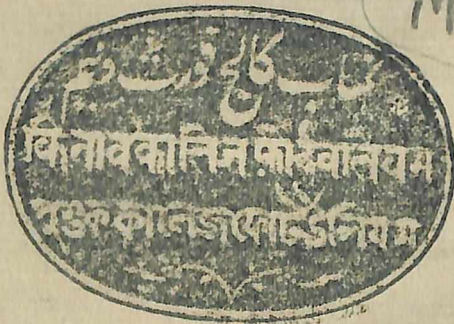 کتاب کالج فورٹ ولیم
किताब कालिज फोर्ट वालियम
পুস্তক কালেজ ফোর্ট উলিয়ম